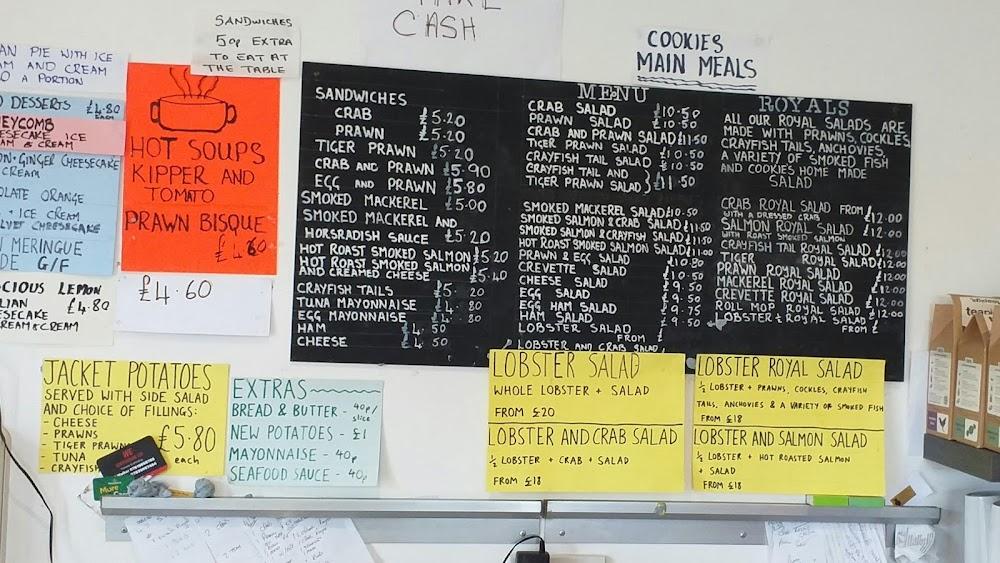 CASH
SANDWICHES
50p EXTRA
TO EAT AT
THE TABLE
COOKIES
MAIN MEALS
PIE WITH ICE
AND CREAM
A PORTION
DESSERTS £4.80
EACH
ICE
& CREAM
GINGER CHEESECAKE
CREAM
ORANGE
+ ICE CREAM
CHEESECAKE
MERINGUE
G/F
LEMON
£4.80
HOT SOUPS
KIPPER AND
TOMATO
PRAWN BISQUE
£4.60
SANDWICHES
CRAB £5.20
PRAWN £5.20
TIGER PRAWN £5.20
CRAB AND PRAWN £5.90
EGG AND PRAWN £5.80
SMOKED MACKEREL £5.00
SMOKED MACKEREL AND
HORSRADISH SAUCE £5.20
HOT ROAST SMOKED SALMON £5.20
HOT ROAST SMOKED SALMON
AND CREAMED CHEESE £5.40
CRAYFISH TAILS £5.20
TUNA MAYONNAISE £4.80
EGG MAYONNAISE £4.80
HAM £4.50
CHEESE £4.50
MENU
CRAB SALAD £10.50
PRAWN SALAD £10.50
CRAB AND PRAWN SALAD £11.50
TIGER PRAWN SALAD £10.50
CRAYFISH TAIL SALAD £10.50
CRAYFISH TAIL AND
TIGER PRAWN SALAD } £11.50
SMOKED MACKEREL SALAD £10.50
SMOKED SALMON & CRAB SALAD £11.50
SMOKED SALMON & CRAYFISH SALAD £11.50
HOT ROAST SMOKED SALMON SALAD £11.00
PRAWN & EGG SALAD
CREVETTE SALAD
CHEESE SALAD £9.50
EGG SALAD £9.50
EGG HAM SALAD £9.75
HAM SALAD £9.50
LOBSTER SALAD FROM £
LOBSTER AND CRAB SALAD
ROYALS
ALL OUR ROYAL SALADS ARE
MADE WITH PRAWNS, COCKLES,
CRAYFISH TAILS, ANCHOVIES
A VARIETY OF SMOKED FISH
AND COOKIES HOME MADE
SALAD
CRAB ROYAL SALAD FROM £12.00
WITH A DRESSED CRAB
SALMON ROYAL SALAD £12.00
WITH ROAST SMOKED SALMON
CRAYFISH TAIL ROYAL SALAD £12.00
TIGER ROYAL SALAD £12.00
PRAWN ROYAL SALAD
MACKEREL ROYAL SALAD
CREVETTE ROYAL SALAD
ROLL MOP ROYAL SALAD £12.00
LOBSTER ROYAL SALAD
FROM £
JACKET POTATOES
SERVED WITH SIDE SALAD
AND CHOICE OF FILLINGS:
- CHEESE
- PRAWNS
- TIGER PRAWNS
- TUNA
- CRAYFISH
£5.80
each
EXTRAS
BREAD & BUTTER - 40p/
slice
NEW POTATOES - £1
MAYONNAISE - 40p
SEAFOOD SAUCE - 40p
LOBSTER SALAD
WHOLE LOBSTER + SALAD
FROM £20
LOBSTER AND CRAB SALAD
½ LOBSTER + CRAB + SALAD
FROM £18
LOBSTER ROYAL SALAD
½ LOBSTER + PRAWNS, COCKLES, CRAYFISH
TAILS, ANCHOVIES & A VARIETY OF SMOKED FISH
FROM £18
LOBSTER AND SALMON SALAD
½ LOBSTER + HOT ROASTED SALMON
+ SALAD
FROM £18